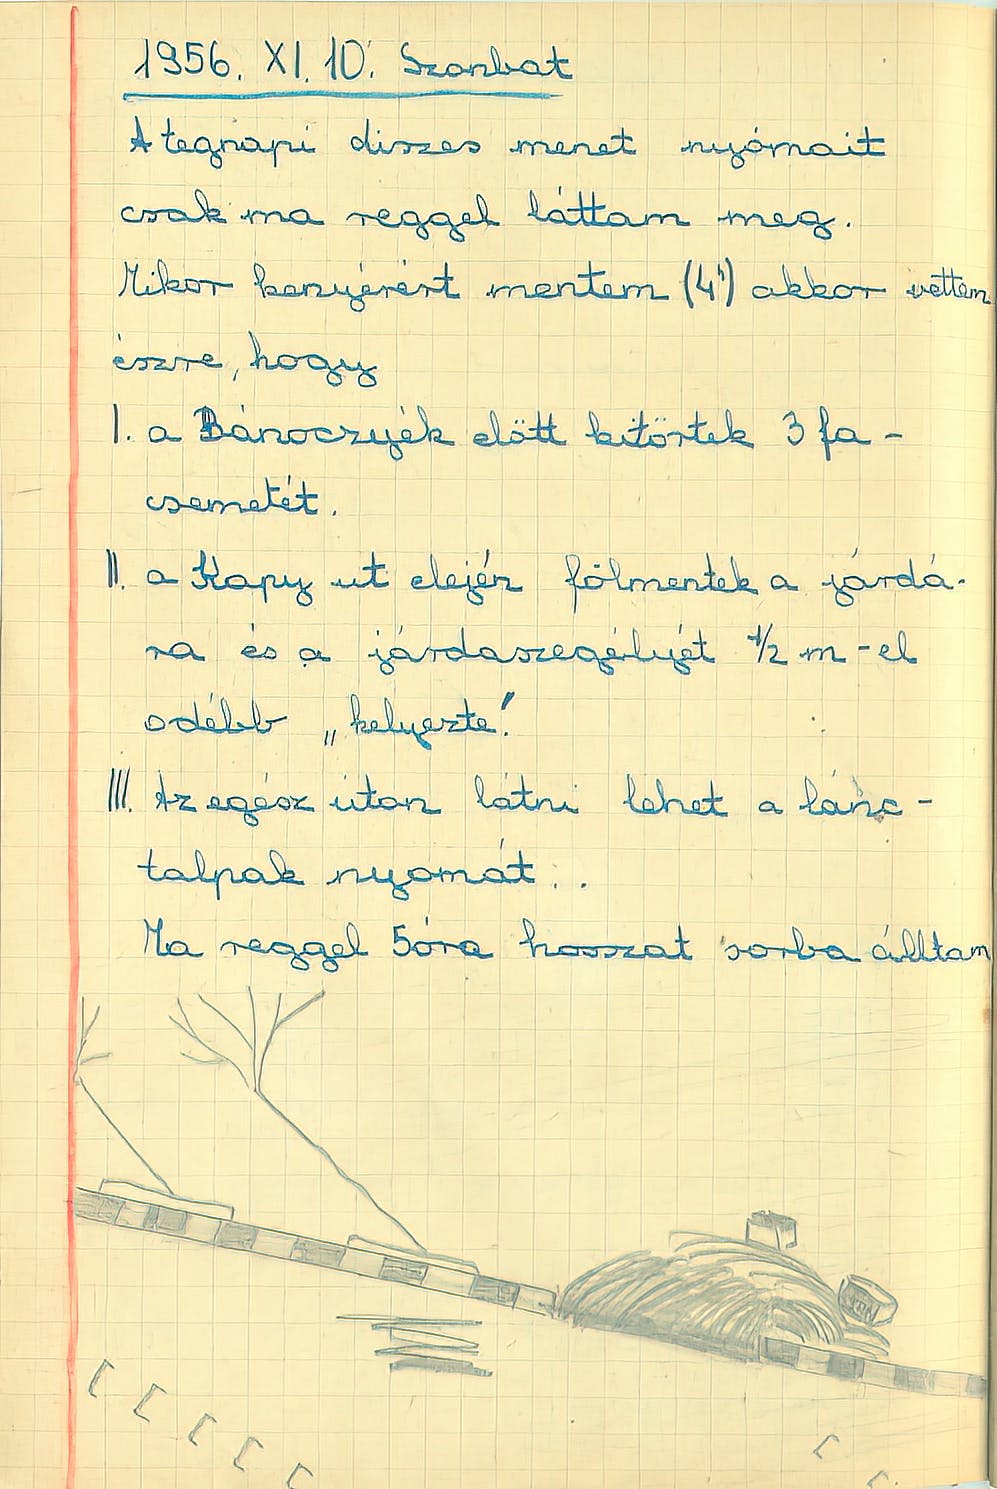 1956. XI. 10. Szombat
A tegnapi diszes menet nyómait
csak ma reggel láttam meg.
Mikor kenyérért mentem (4h) akkor vettem
észre, hogy
I. a Bánoczyék előtt kitörtek 3 fa-
csemetét.
II. a Kapy ut elején fölmentek a járdá-
ra és a járdaszegélyét ½ m-el
odébb „helyezte".
III. Az egész úton látni lehet a lánc-
talpak nyomát...
Ma reggel 5 óra hosszat sorba álltam